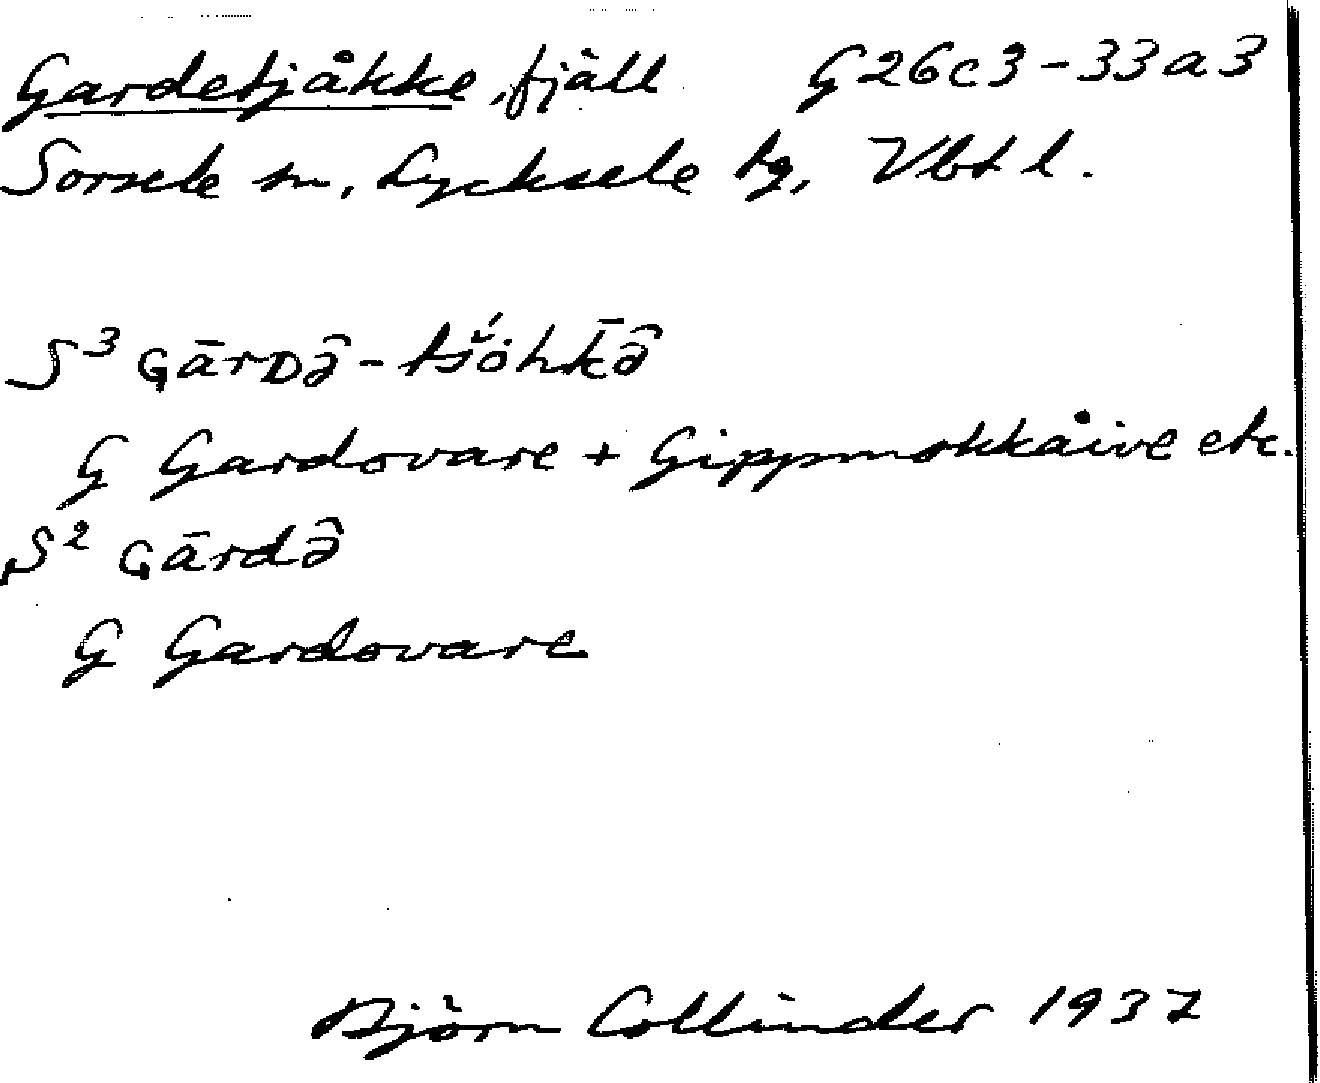 Gardetjåkke, fjäll G26c3-33a3
Sorsele sn, Lycksele tg, Vbt l.
S³ Gārᴅə̂-tš́ọ̆hk̄ə̂
G Gardovare + Gippmokkåive etc.
S² Gārdə̂
G Gardovare
Björn Collinder 1937